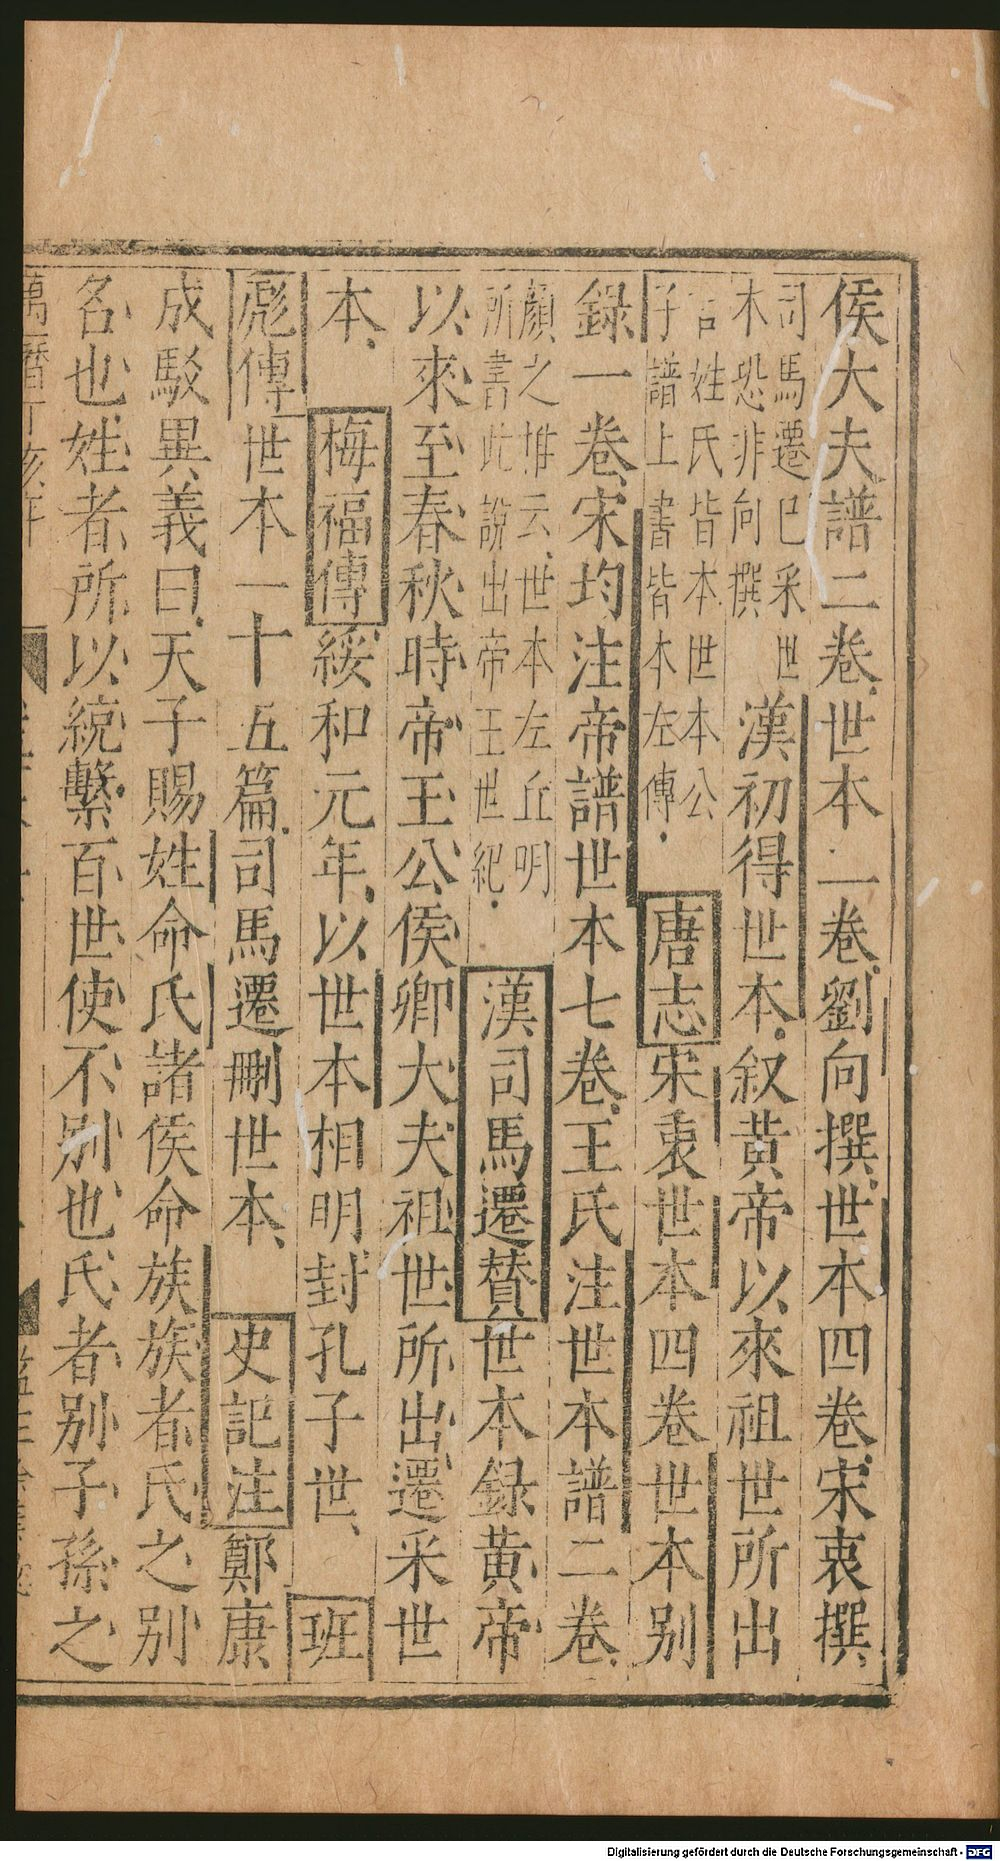 侯大夫譜二卷世本二卷劉向撰世本四卷宋衷撰
司馬遷已采世
木恐非向撰
漢初得世本叙黄帝以來祖世所出
言姓氏皆本世本公
子譜上書皆本左傳
唐志宋衷世本四卷世本别
録一卷宋均注帝譜世本七卷王氏注世本譜二卷
顔之推云世本左丘明
所書此說出帝王世紀
漢司馬遷賛世本録黄帝
以來至春秋時帝王公侯卿大夫祖世所出遷采世
本梅福傳綏和元年以世本相明封孔子世班
彪傳世本一十五篇司馬遷刪世本史記注鄭康
成駁異義曰天子賜姓命氏諸侯命族族者氏之别
名也姓者所以統繫百世使不别也氏者别子孫之
萬曆
Digitalisierung gefördert durch die Deutsche Forschungsgemeinschaft - DFG